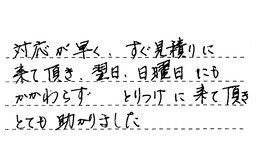 対応が早く、すぐ見積りに
来て頂き、翌日、日曜日にも
かかわらず とりつけに来て頂き
とても助かりました